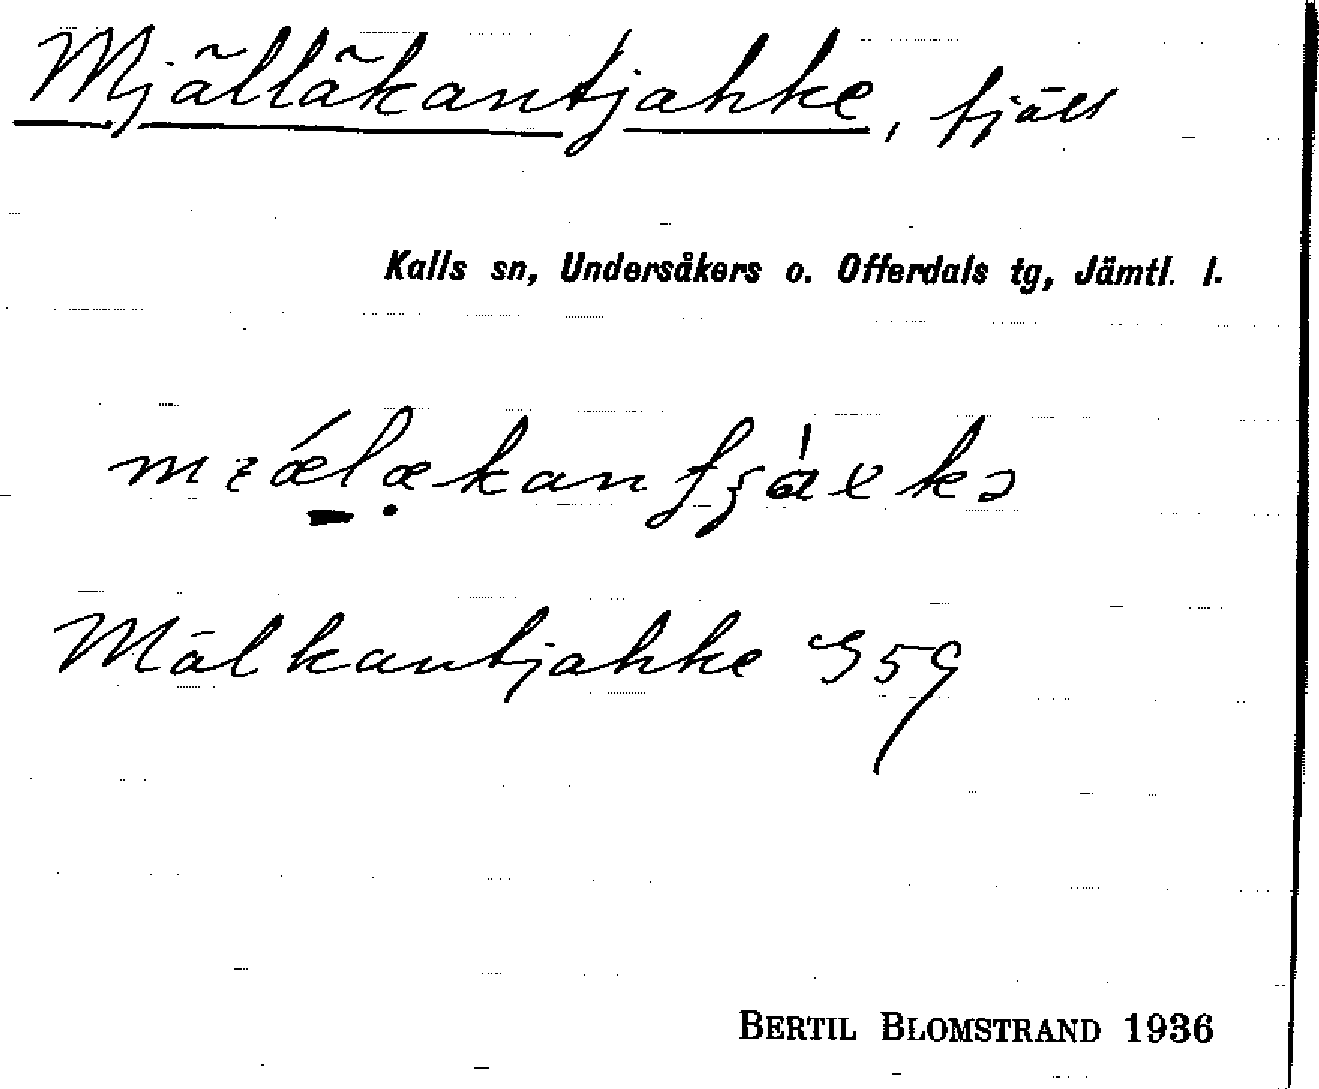 Mjälläkantjahke, fjäll
Kalls sn, Undersåkers o. Offerdals tg, Jämtl. l.
Mälkantjahke S59
BERTIL BLOMSTRAND 1936